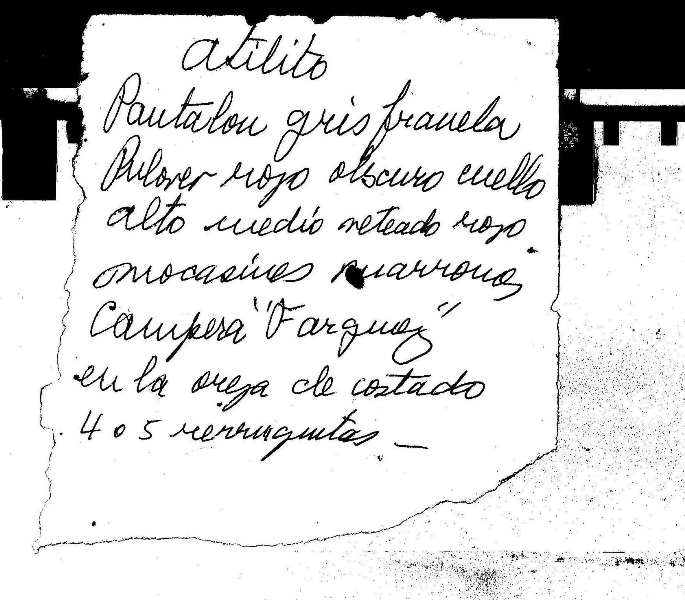 Atilito
Pantalon gris franela
Pulover rojo obscuro cuello
alto medio veteado rojo
mocasines marrones
Campera "Farguez"
en la oreja de costado
4 o 5 verruguitas _